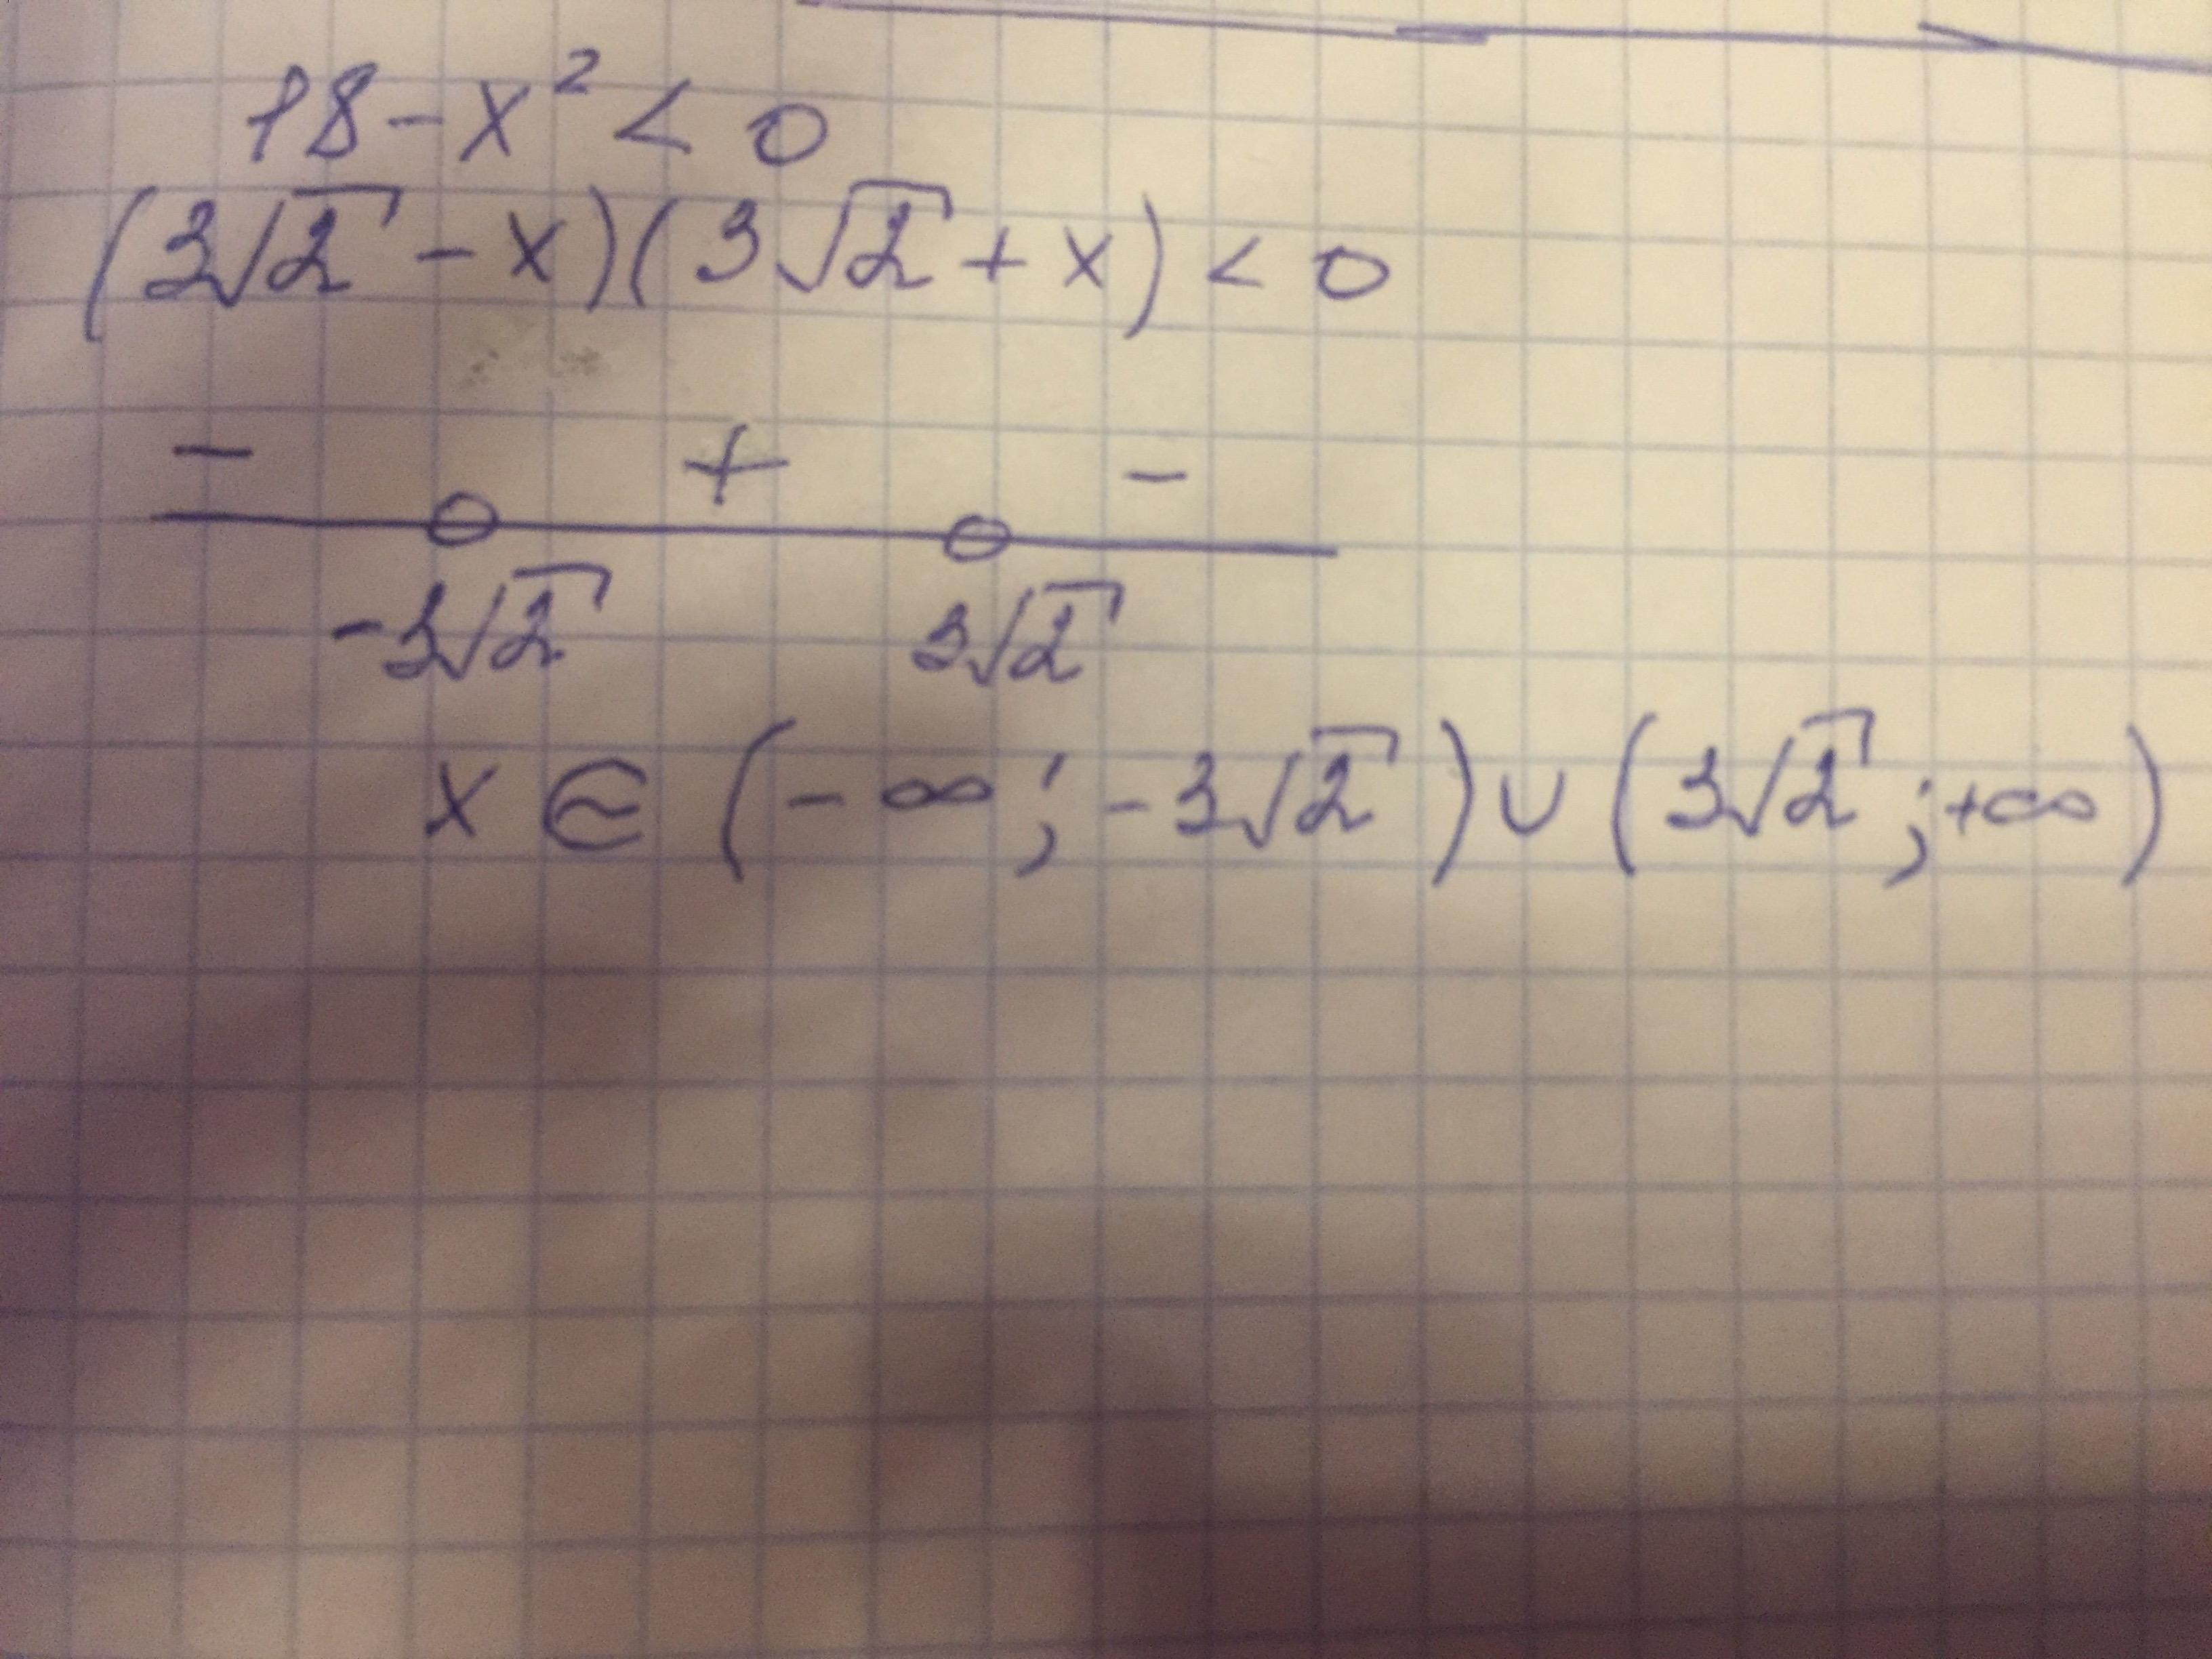 18 - x² < 0
(3√2 - x)(3√2 + x) < 0
- + -
-3√2 3√2
x ∈ (-∞; -3√2) ∪ (3√2; +∞)